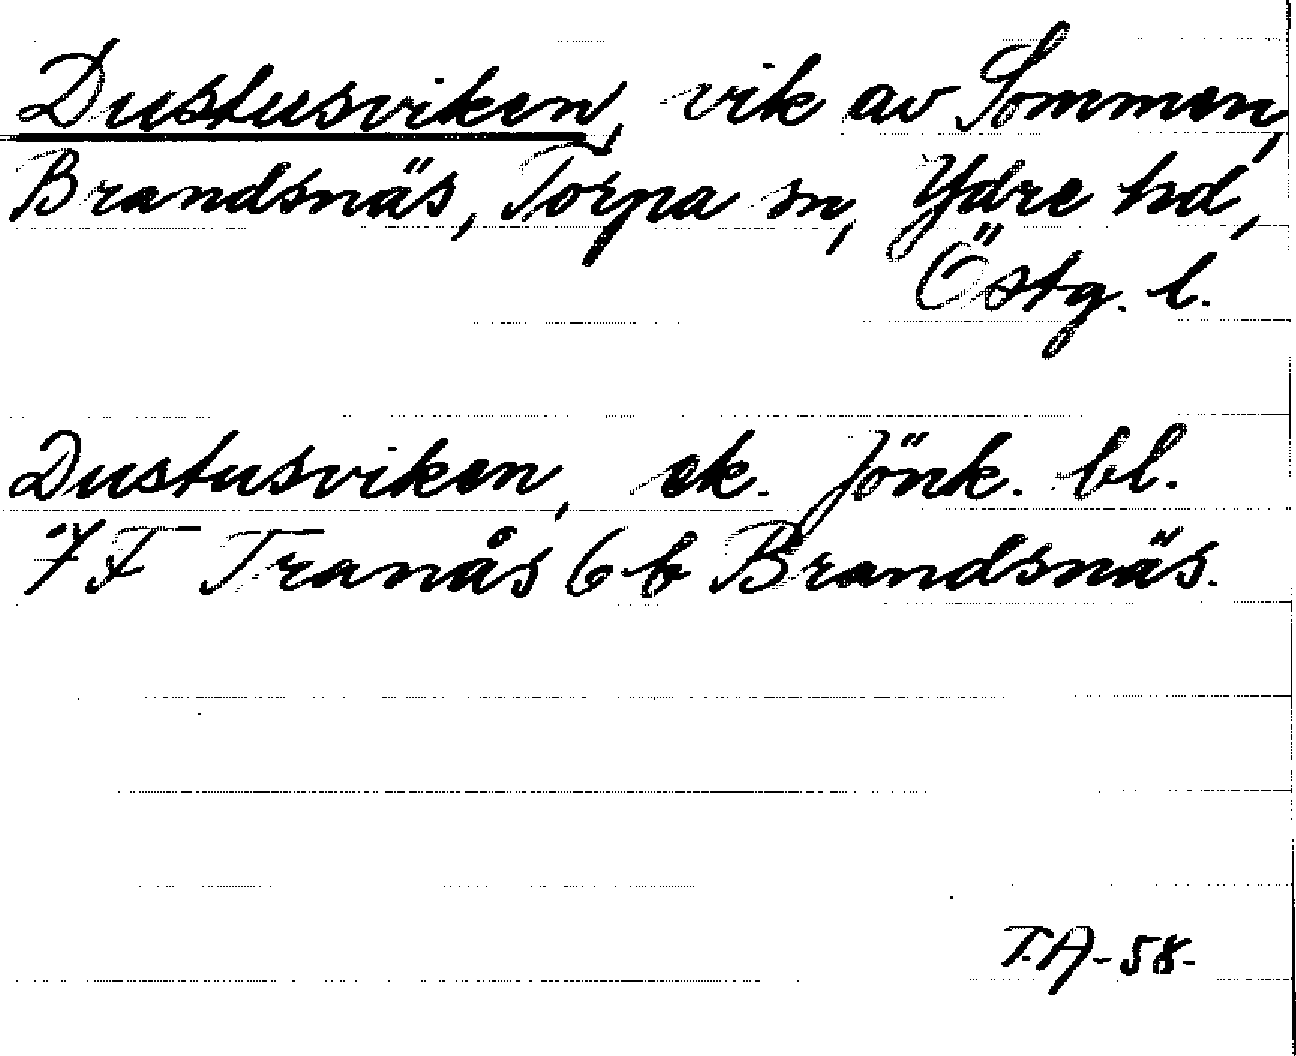 Dustusviken, vik av Sommen,
Brandsnäs, Torpa sn, Ydre hd,
Östg. l.
Dustusviken, ek. Jönk. bl.
7 F Tranås 6 b Brandsnäs.
T.A-58-